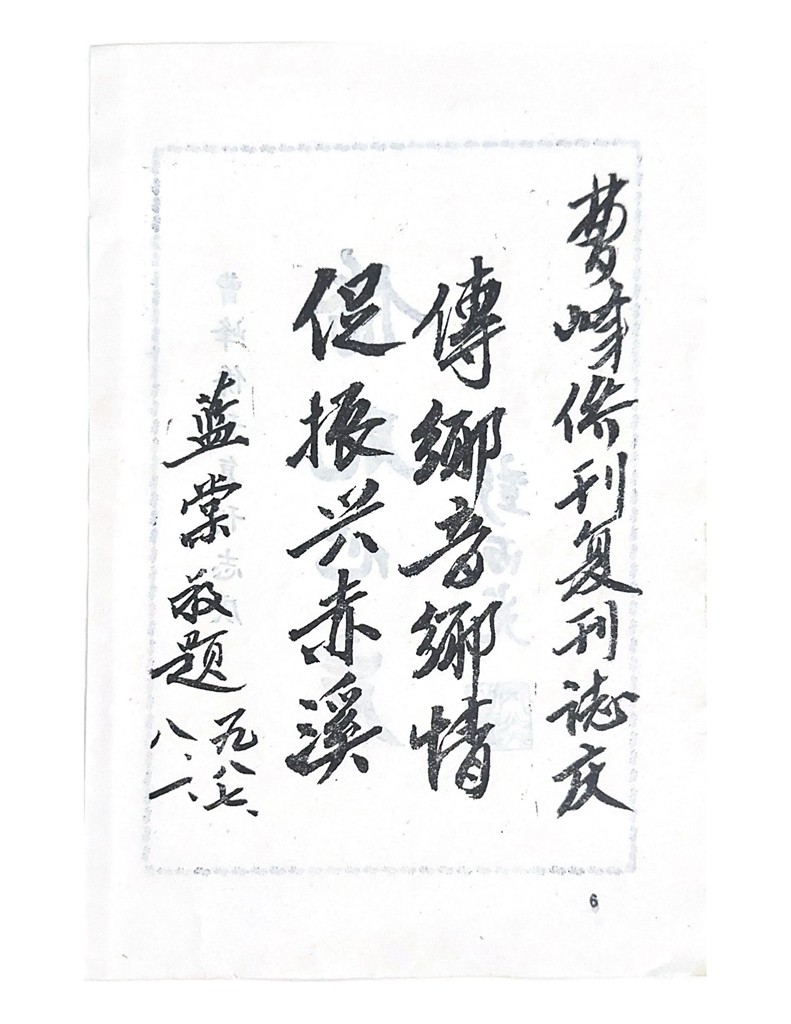 曹峰侨刊复刊誌庆
傳鄉音鄉情
促振兴赤溪
蓝棠敬题
一九八七、
八、六、
6